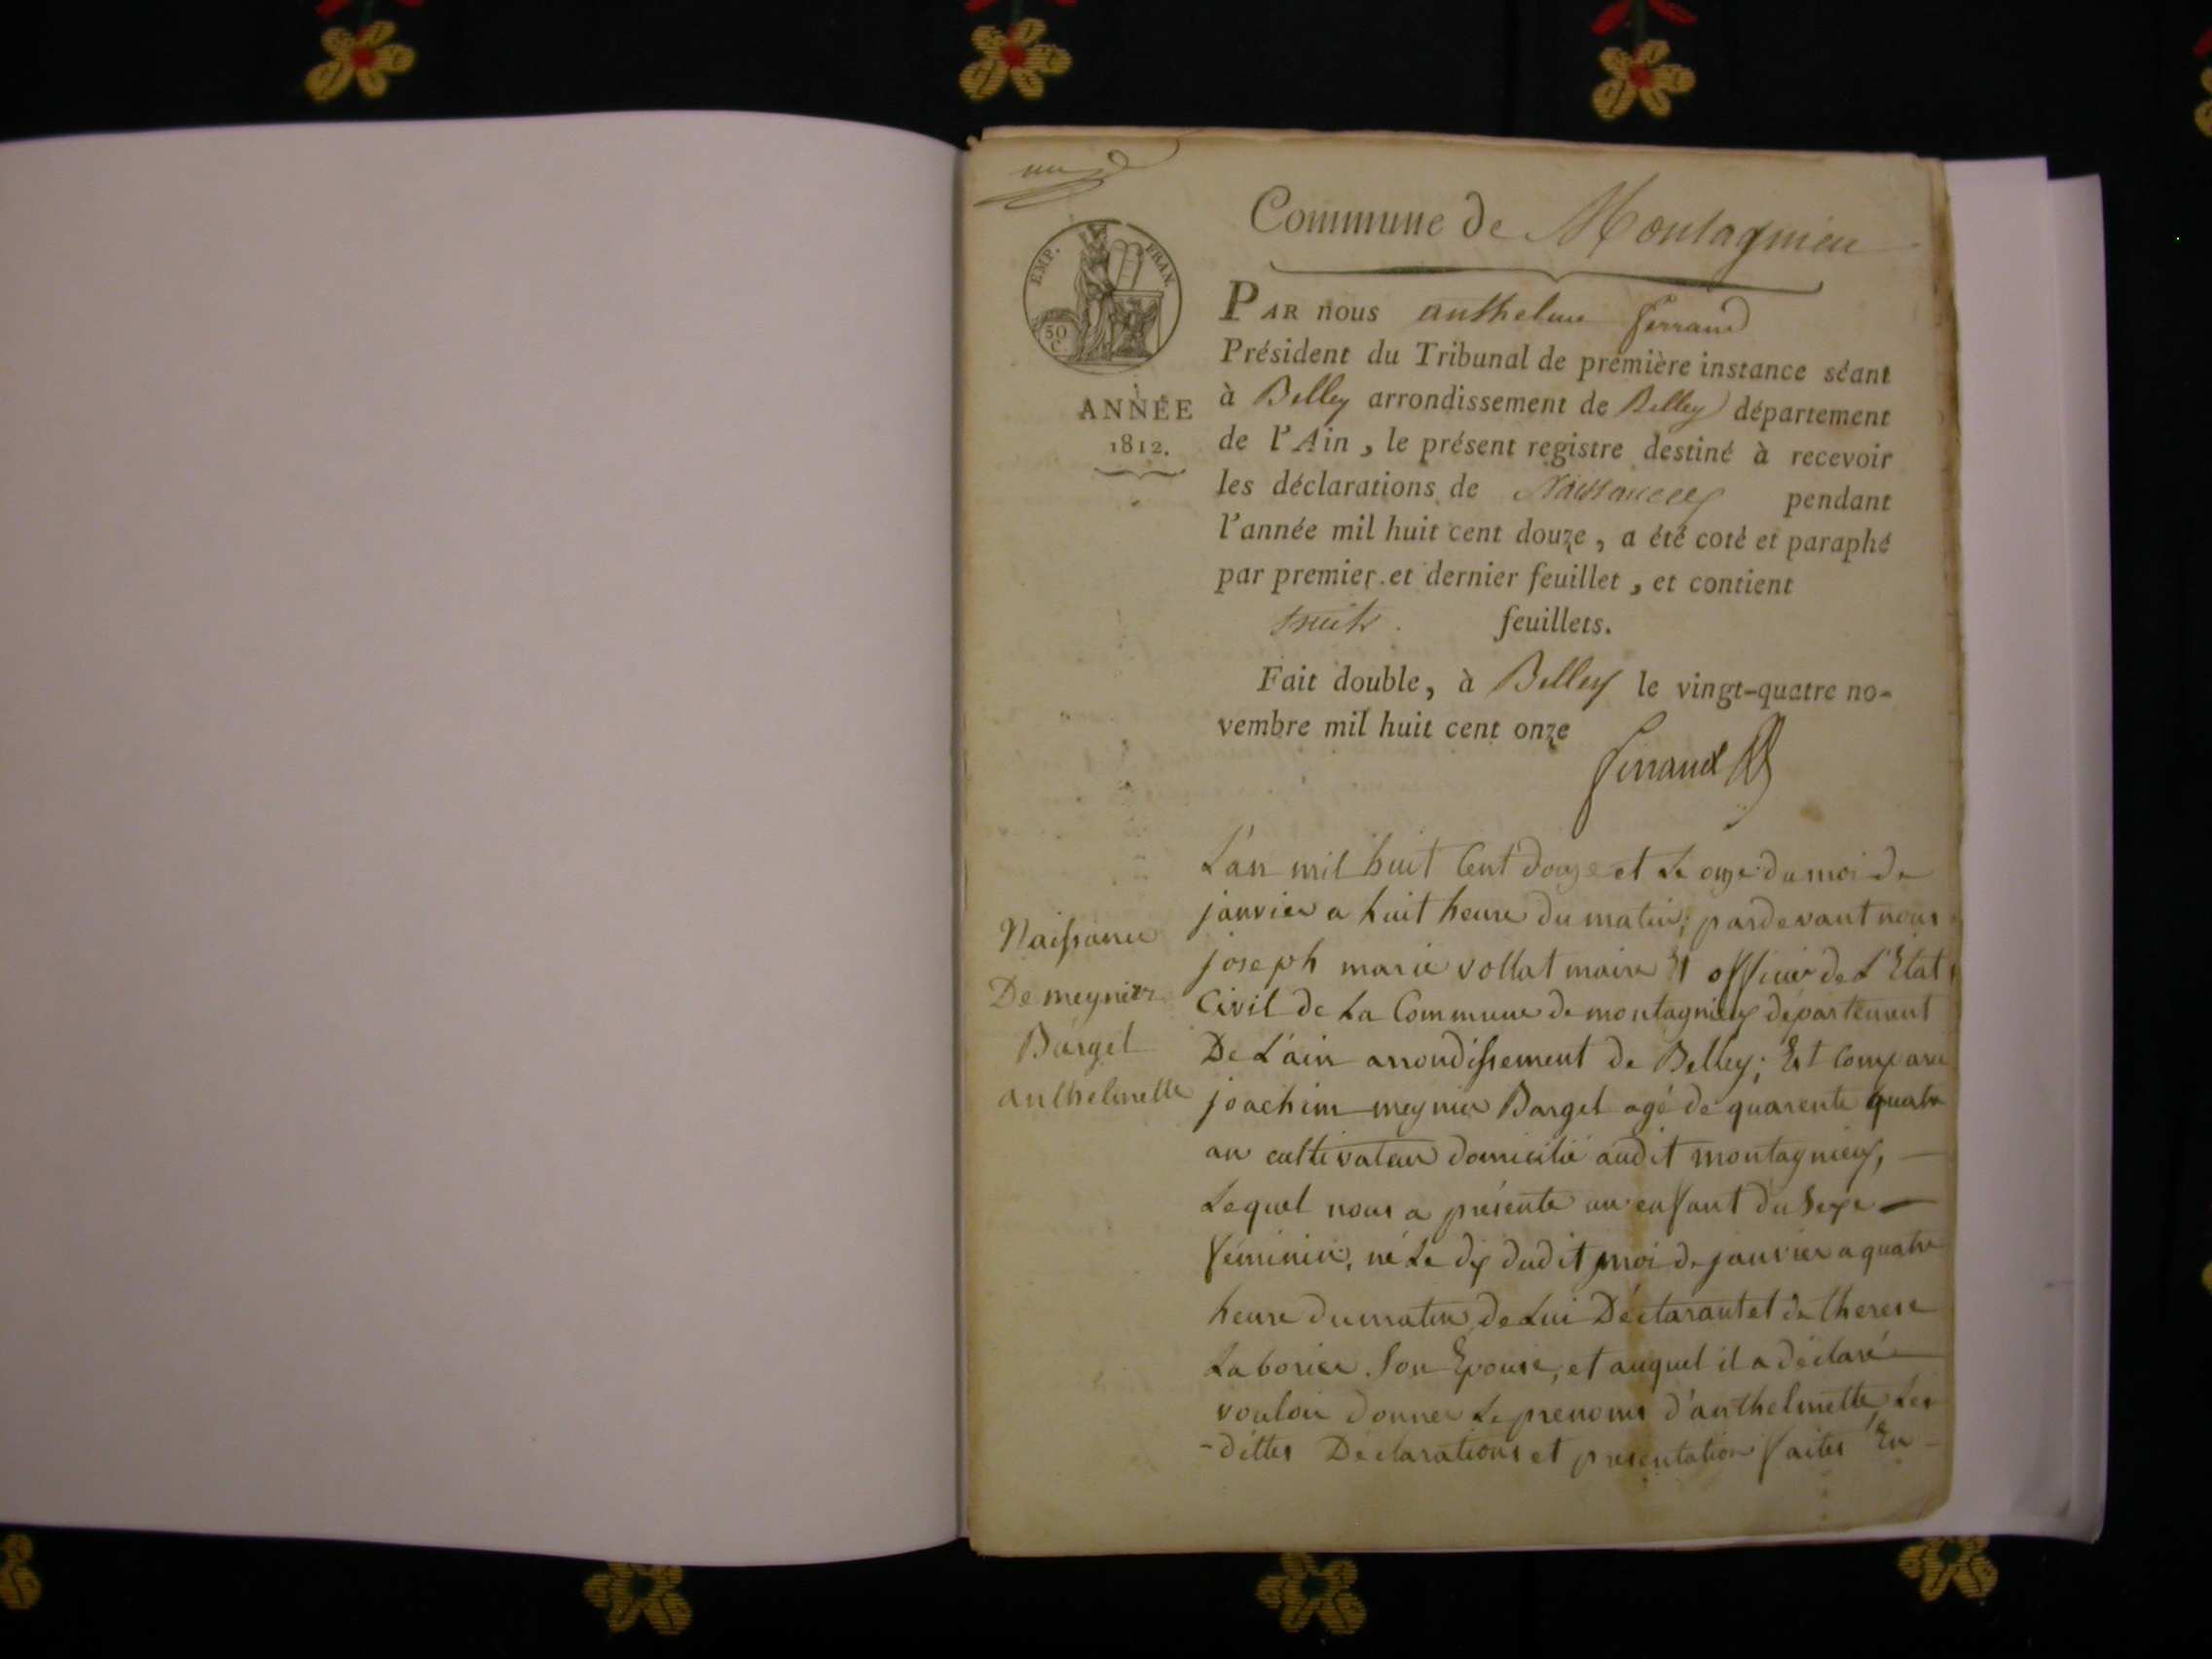 un
Commune de Montagnieu
EMP. FRAN.
50 C.
ANNÉE
1812.
PAR nous anthelme ferrand
Président du Tribunal de première instance séant
à Belley arrondissement de Belley département
de l'Ain, le présent registre destiné à recevoir
les déclarations de Naissances pendant
l'année mil huit cent douze, a été coté et paraphé
par premier et dernier feuillet, et contient
huit feuillets.
Fait double, à Belley le vingt-quatre no-
vembre mil huit cent onze
ferrand
Naissance
De meynier
Bargel
anthelmette
L'an mil huit Cent douze et Le onze du moi de
janvier a huit heure du matin; pardevant nous
joseph marie vollat maire Et officier de L'Etat
Civil de La Commune de montagnieu département
De L'ain arrondissement de Belley; Est Comparu
joachim meynier Bargel agé de quarente quatre
an cultivateur domicilié audit montagnieu,
Lequel nous a présenté un enfant du Sexe
féminin, né Le dix dudit moi de janvier a quatre
heure du matin de Lui Déclarant et de therese
Laborier Son Epouse, et auquel il a déclaré
vouloir donner Le prenoms d'anthelmette, Les
-dittes Déclarations et presentation faites En